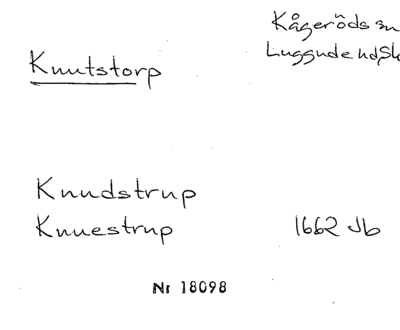 Kågeröds sn
Luggude hd, Sk
Knutstorp
Knudstrup
Knuestrup 1662 Jb
Nr 18098